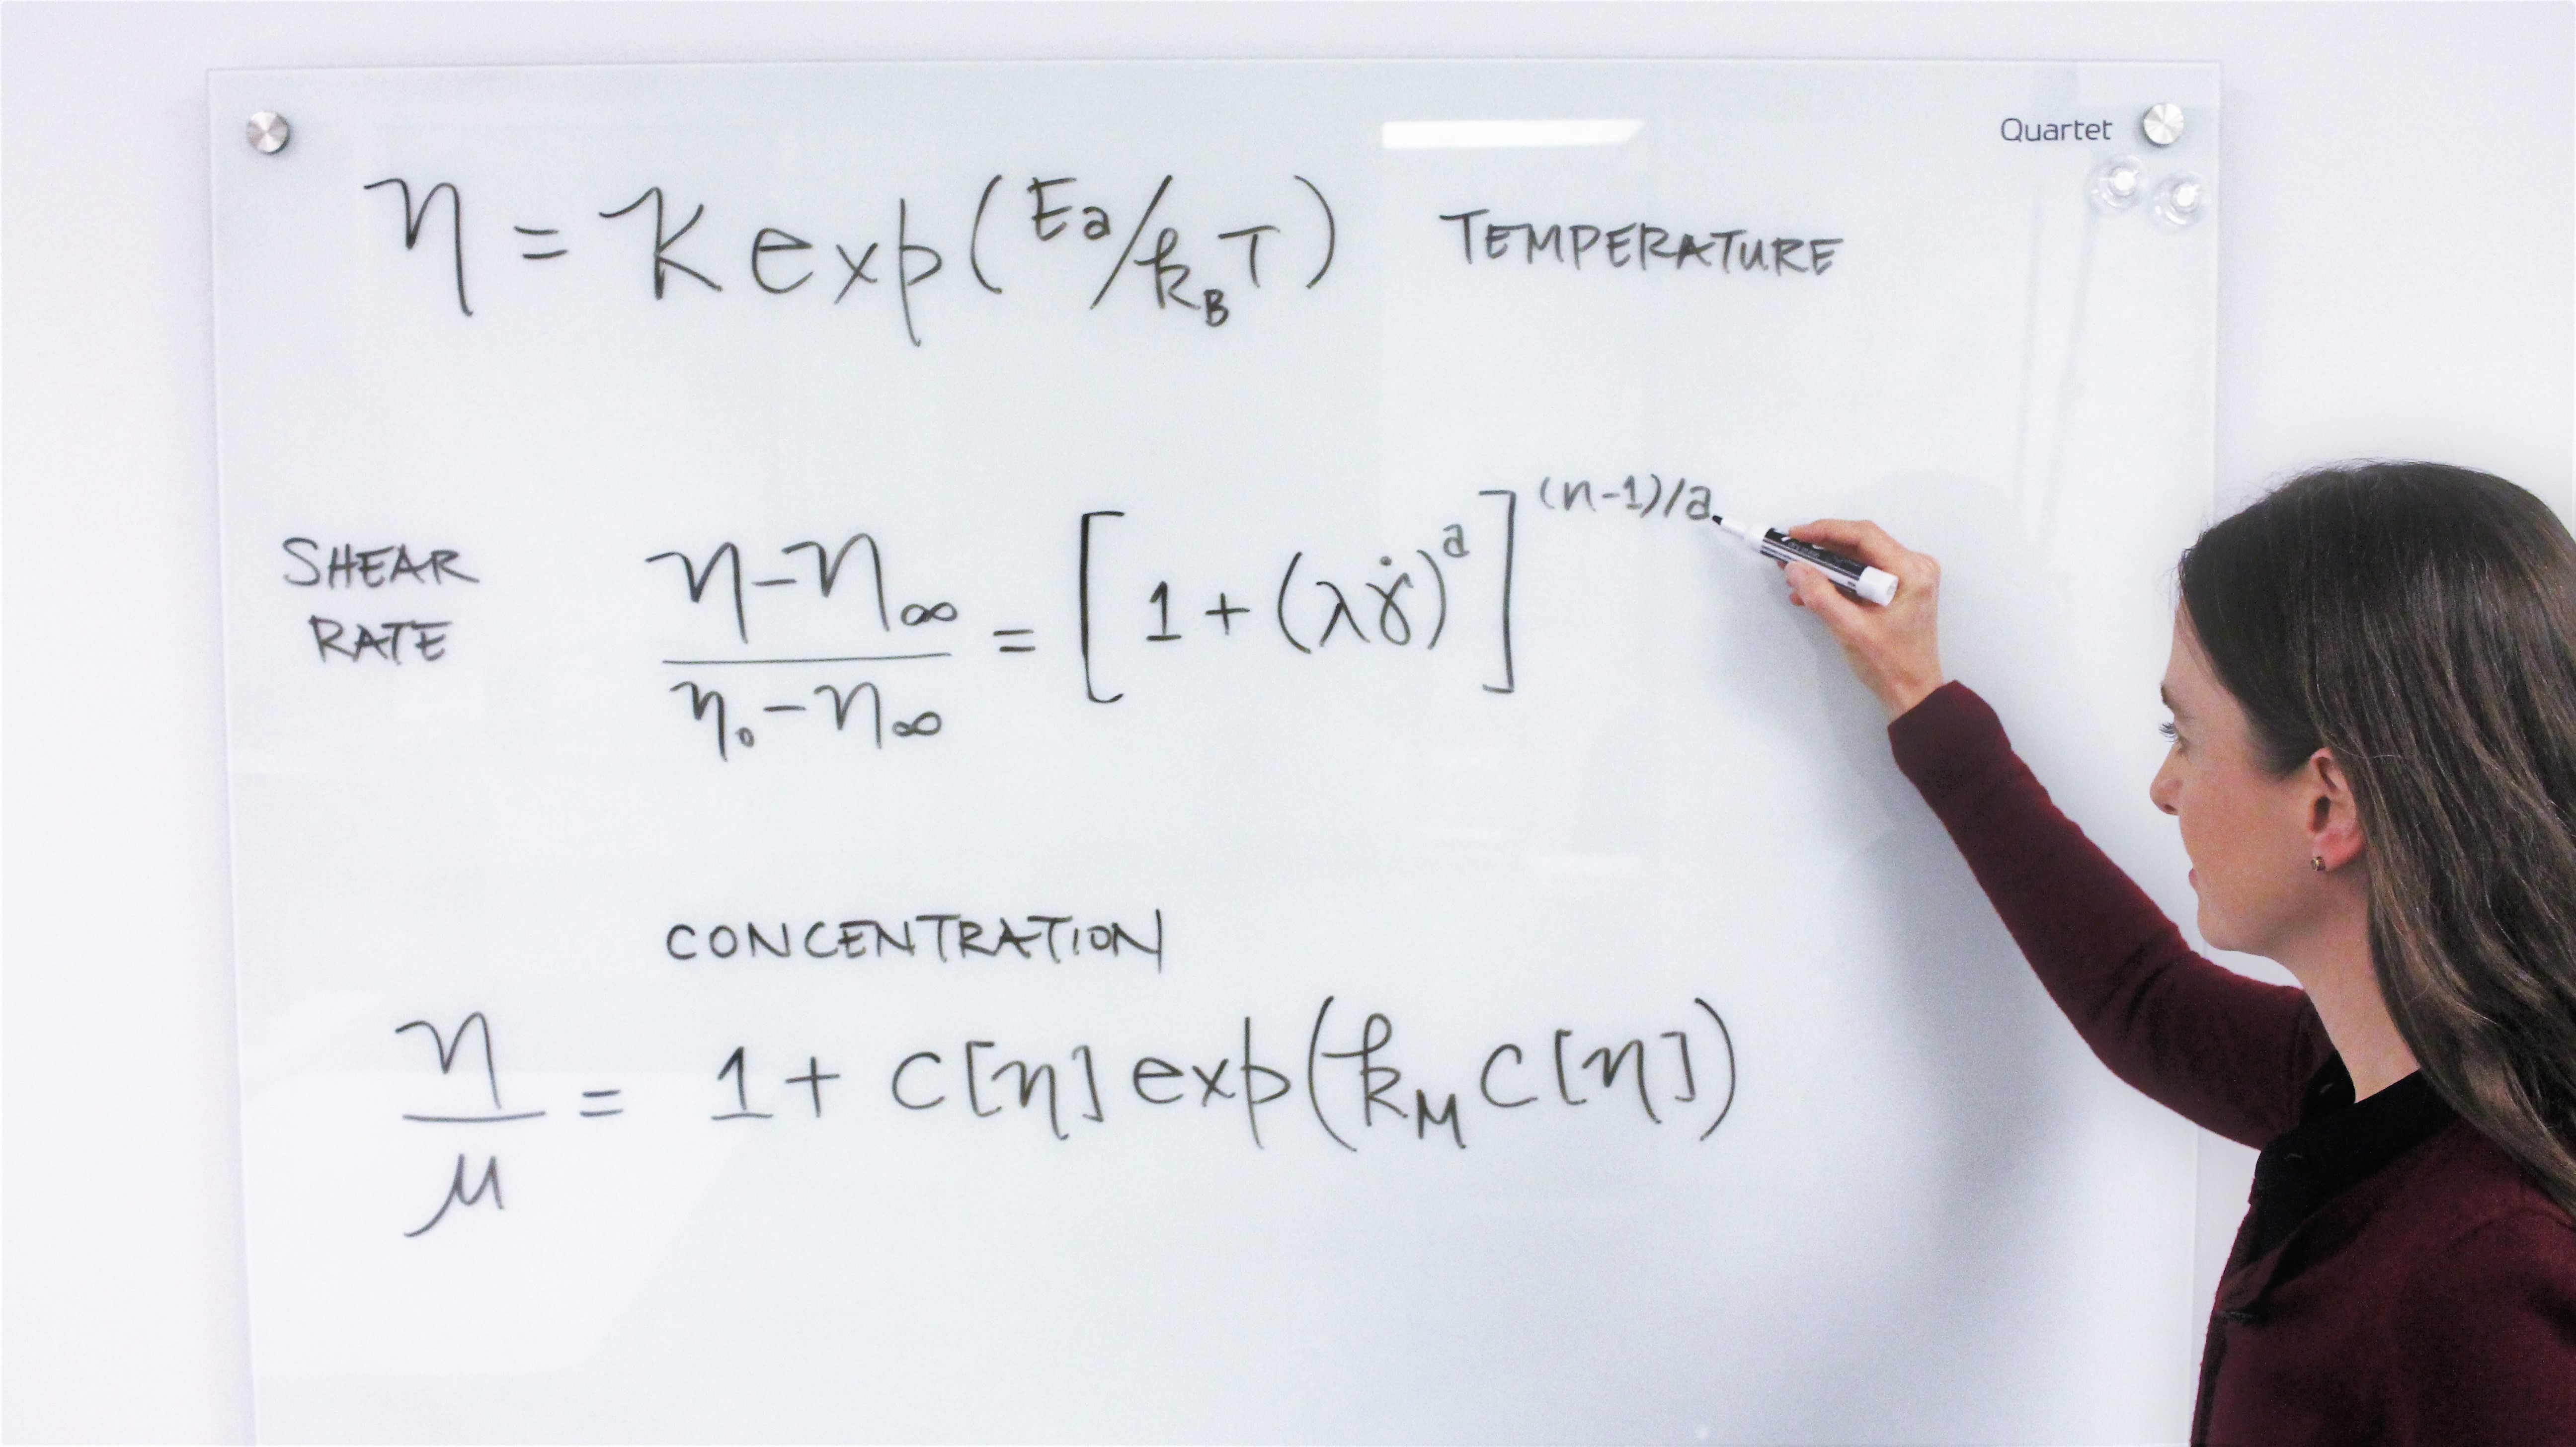 Quartet
η = K exp(Ea/k_B T) TEMPERATURE
SHEAR
RATE
(η-η∞)/(η₀-η∞) = [1 + (λγ̇)^a]^((n-1)/a)
CONCENTRATION
η/μ = 1 + C[η] exp(k_M C[η])